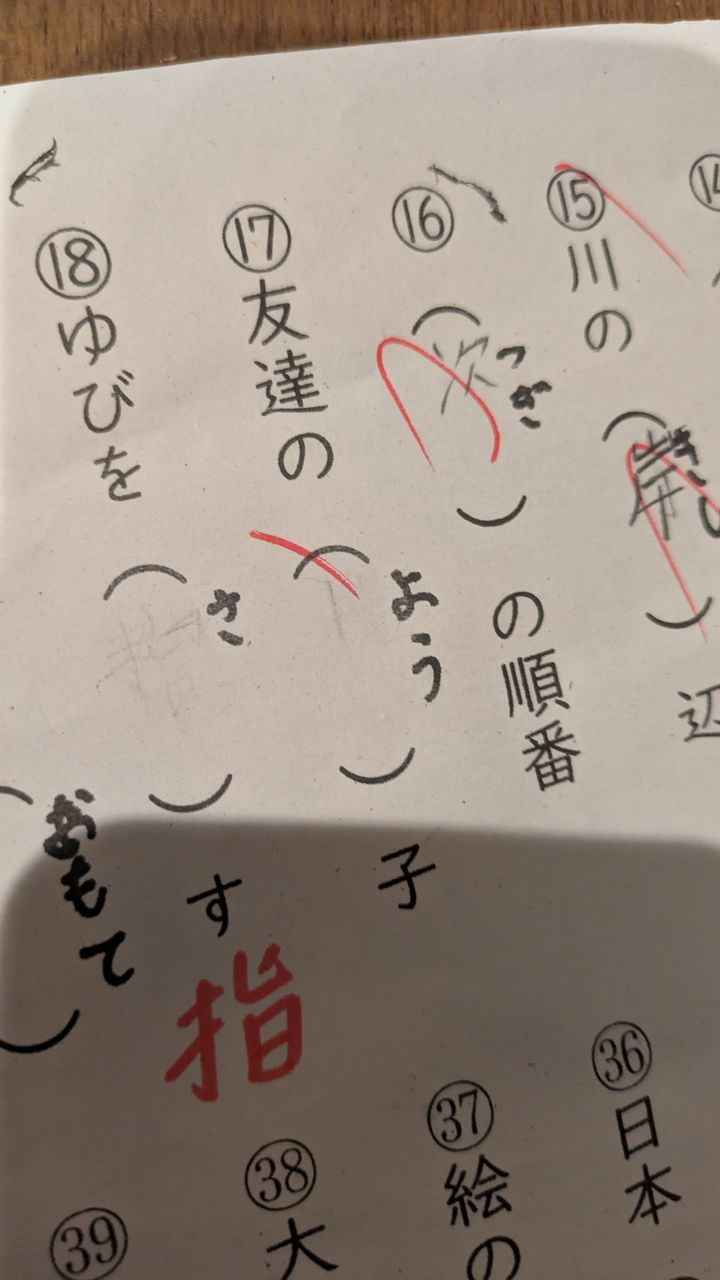 ⑮川の（岸）辺
きし
⑯（次）の順番
つぎ
⑰友達の（　）子
よう
⑱ゆびを（指）す
さ
指
（　）
おもて
㊱日本
㊲絵の
㊳大
㊴